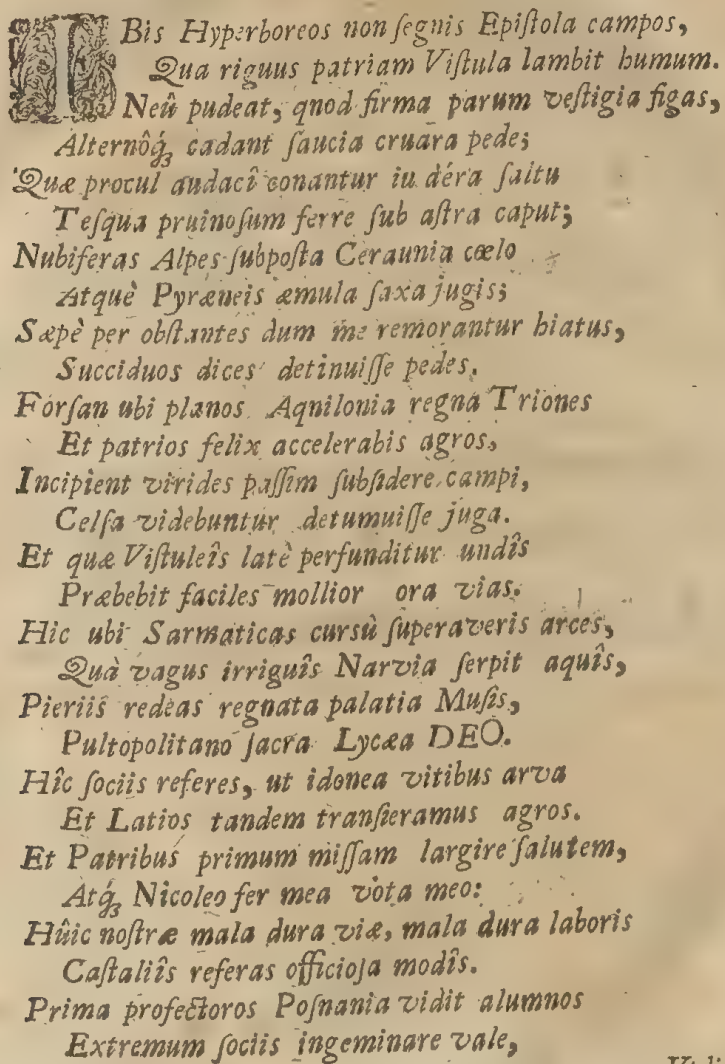 IBis Hyperboreos non ſegnis Epiſtola campos,
Qua riguus patriam Viſtula lambit humum.
Neû pudeat, qnod firma parum veſtigia figas,
Alternôq́ꝫ cadant ſaucia cruara pede;
Quæ procul audacî conantur in déra ſaltu
Teſqua pruinoſum ferre ſub aſtra caput;
Nubiferas Alpes ſubpoſta Ceraunia cœlo
Atquè Pyræneis æmula ſaxa jugis;
Sæpè per obſtantes dum me remorantur hiatus,
Succiduos dices detinuiſſe pedes.
Forſan ubi planos Aqnilonia regna Triones
Et patrios felix accelerabis agros,
Incipient virides paſſim ſubſidere campi,
Celſa videbuntur detumuiſſe juga.
Et quæ Viſtuleîs latè perfunditur undîs
Præbebit faciles mollior ora vias.
Hic ubi Sarmaticas cursû ſuperaveris arces,
Quà vagus irriguîs Narvia ſerpit aquîs,
Pieriis redeas regnata palatia Muſis,
Pultopolitano ſacra Lycæa DEO.
Hîc ſociis referes, ut idonea vitibus arva
Et Latios tandem tranſieramus agros.
Et Patribus primum miſſam largire ſalutem,
Atq́ꝫ Nicoleo fer mea vota meo:
Hûic noſtræ mala dura viæ, mala dura laboris
Caſtaliîs referas officioſa modîs.
Prima profectoros Poſnania vidit alumnos
Extremum ſociis ingeminare vale,